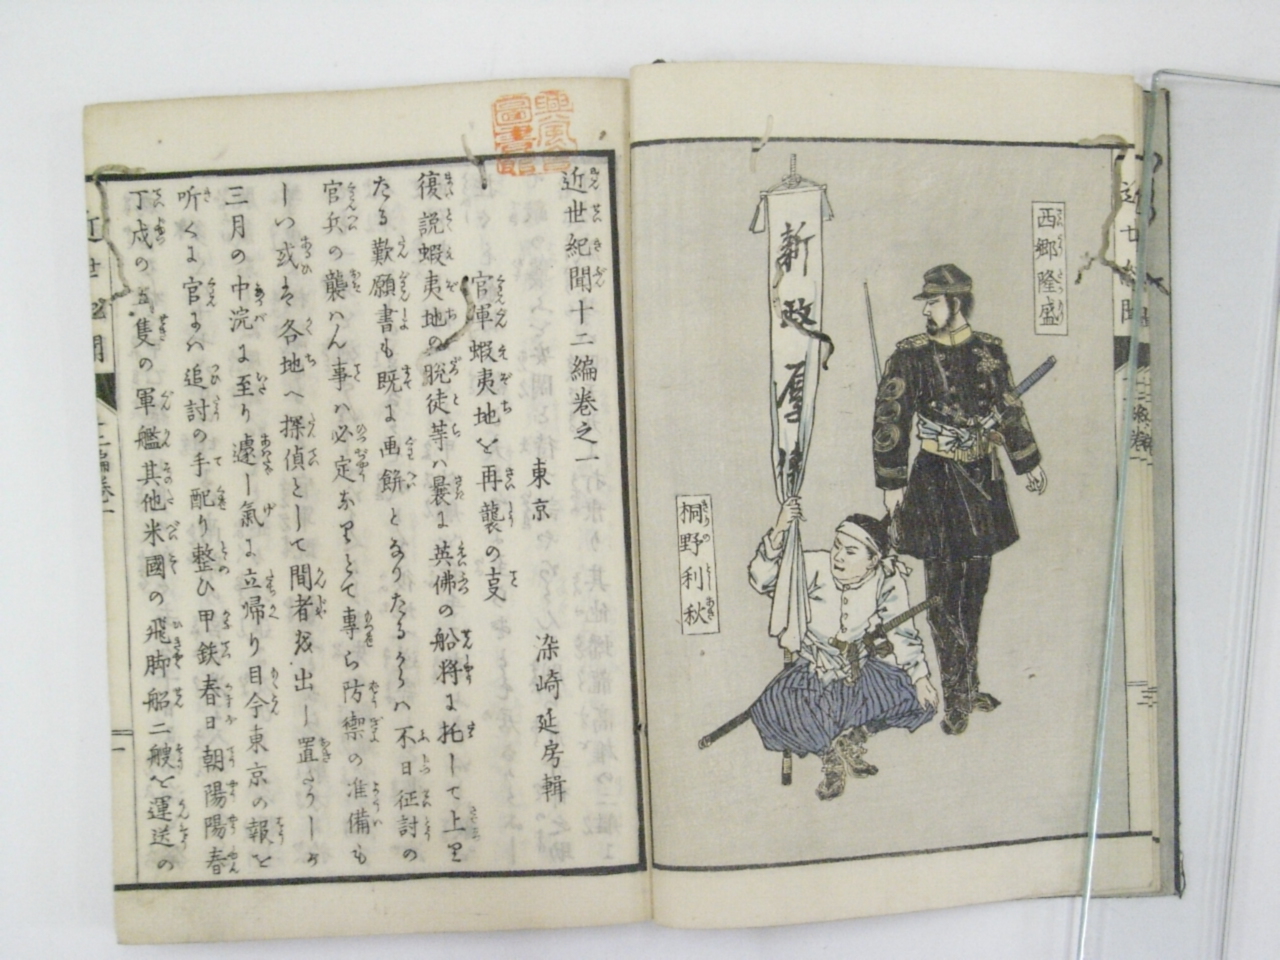 西郷隆盛
新政厚德
桐野利秋
近世紀聞十二編巻之一
東京 染崎延房輯
官軍蝦夷地を再襲の支
復説蝦夷地の脱徒等ハ曩に英佛の船将に托して上里
たる歎願書も既に画餅となりたるからハ不日征討の
官兵の襲はん事ハ必定なりとて専ら防禦の准備も
しつ或は各地へ探偵として間者を出し置たりしが
三月の中浣に至り遽し氣に立帰り目今東京の報を
听くに官にハ追討の手配り整ひ甲鉄春日朝陽陽春
丁戌の五隻の軍艦其他米國の飛脚船二艘を運送の